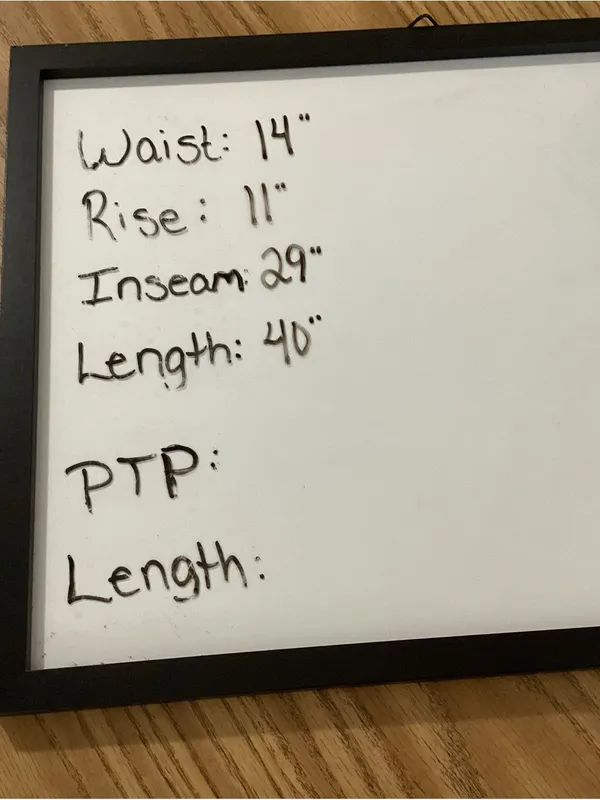 Waist: 14"
Rise: 11"
Inseam: 29"
Length: 40"
PTP:
Length: